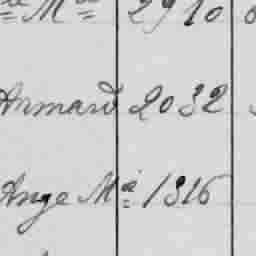 Mª 2910
Armand 2032
Ange Mª 1316